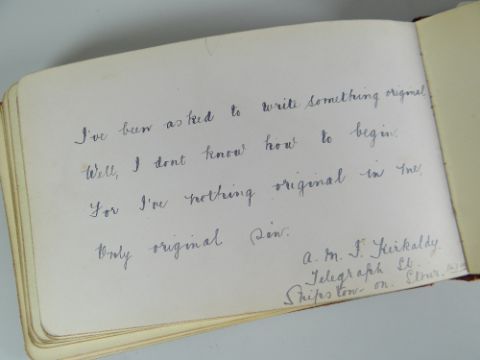 I've been asked to write something original
Well, I dont know how to begin.
For I've nothing original in me,
Only original Sin.
A. M. F. Kirkaldy
Telegraph St.
Shipston-on-Stour.